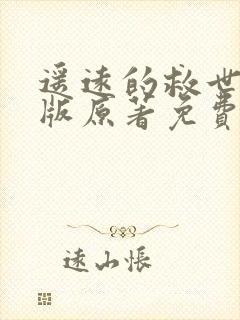 遥远的救世
版原著免费
远山怅